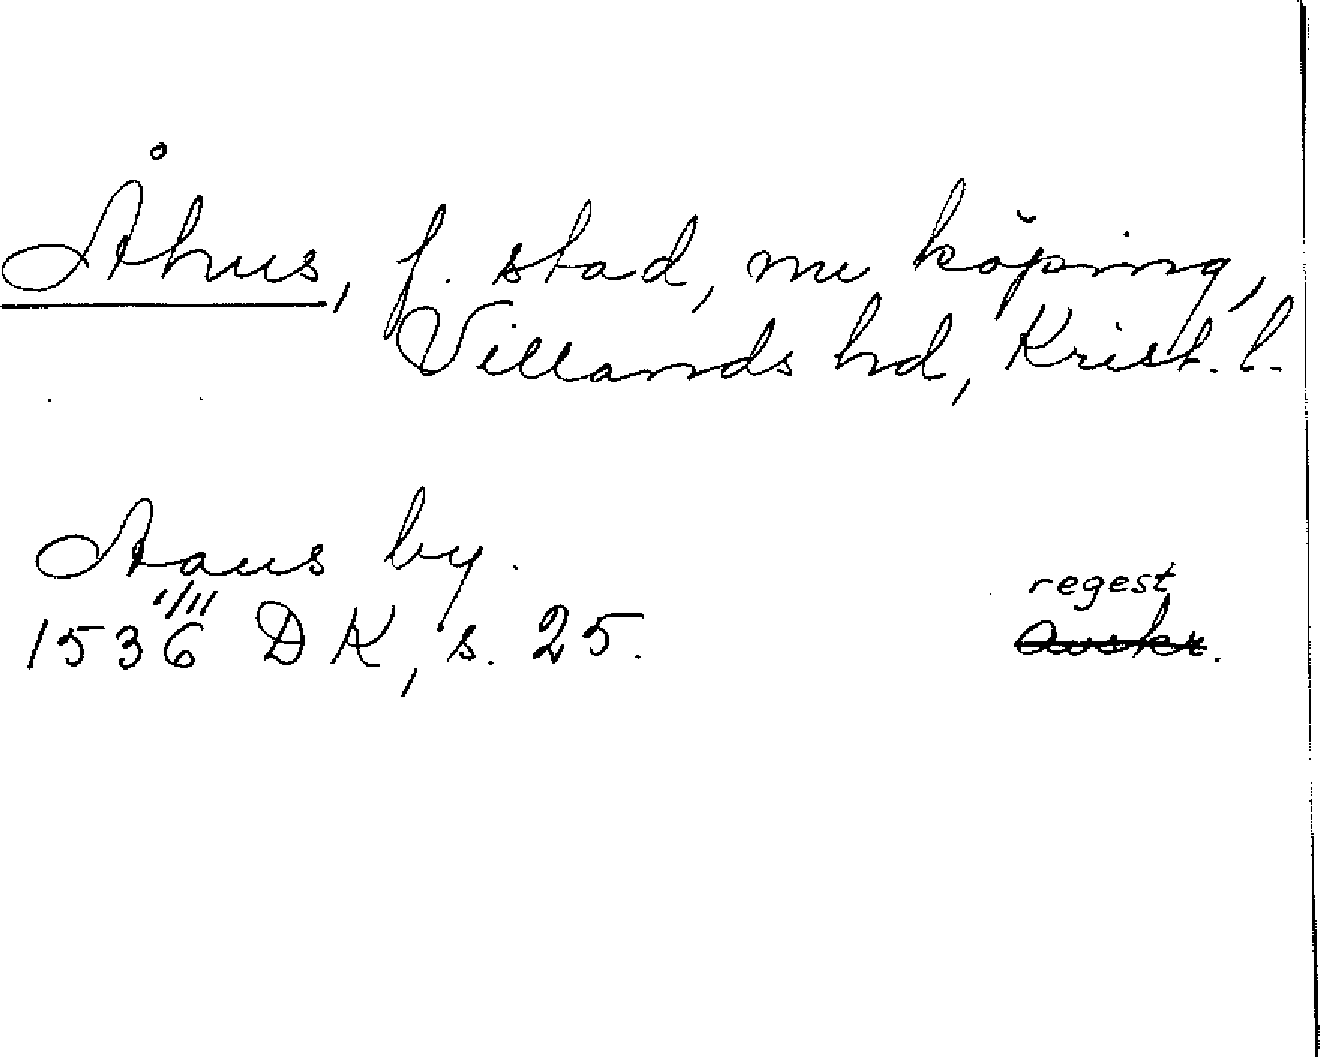 Åhus, f. stad, nu köping,
Villands hd, Krist. l.
Aaus by.
1/11
1536 DK, s. 25.
regest
avskr.